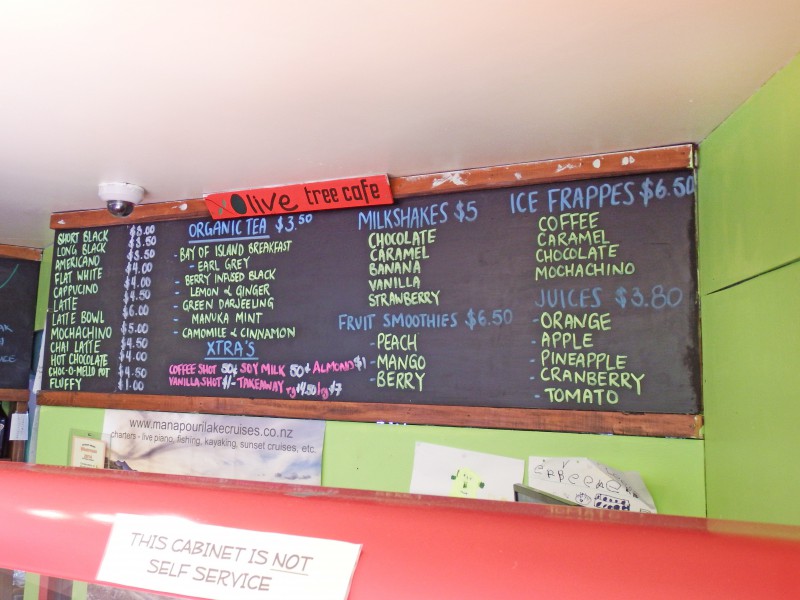 Olive tree cafe
SHORT BLACK $3.00
LONG BLACK $3.50
AMERICANO $3.50
FLAT WHITE $4.00
CAPPUCINO $4.00
LATTE $4.50
LATTE BOWL $6.00
MOCHACHINO $5.00
CHAI LATTE $4.50
HOT CHOCOLATE $4.00
CHOC-O-MELLO POT $4.50
FLUFFY $1.00
ORGANIC TEA $3.50
- BAY OF ISLAND BREAKFAST
- EARL GREY
- BERRY INFUSED BLACK
- LEMON & GINGER
- GREEN DARJEELING
- MANUKA MINT
- CAMOMILE & CINNAMON
XTRA'S
COFFEE SHOT 50¢ SOY MILK 50¢ ALMOND $1
VANILLA SHOT $1- TAKEAWAY rg $4.50/lg $7
MILKSHAKES $5
CHOCOLATE
CARAMEL
BANANA
VANILLA
STRAWBERRY
FRUIT SMOOTHIES $6.50
- PEACH
- MANGO
- BERRY
ICE FRAPPES $6.50
COFFEE
CARAMEL
CHOCOLATE
MOCHACHINO
JUICES $3.80
- ORANGE
- APPLE
- PINEAPPLE
- CRANBERRY
- TOMATO
www.manapourilakecruises.co.nz
charters - live piano, fishing, kayaking, sunset cruises, etc.
THIS CABINET IS NOT
SELF SERVICE